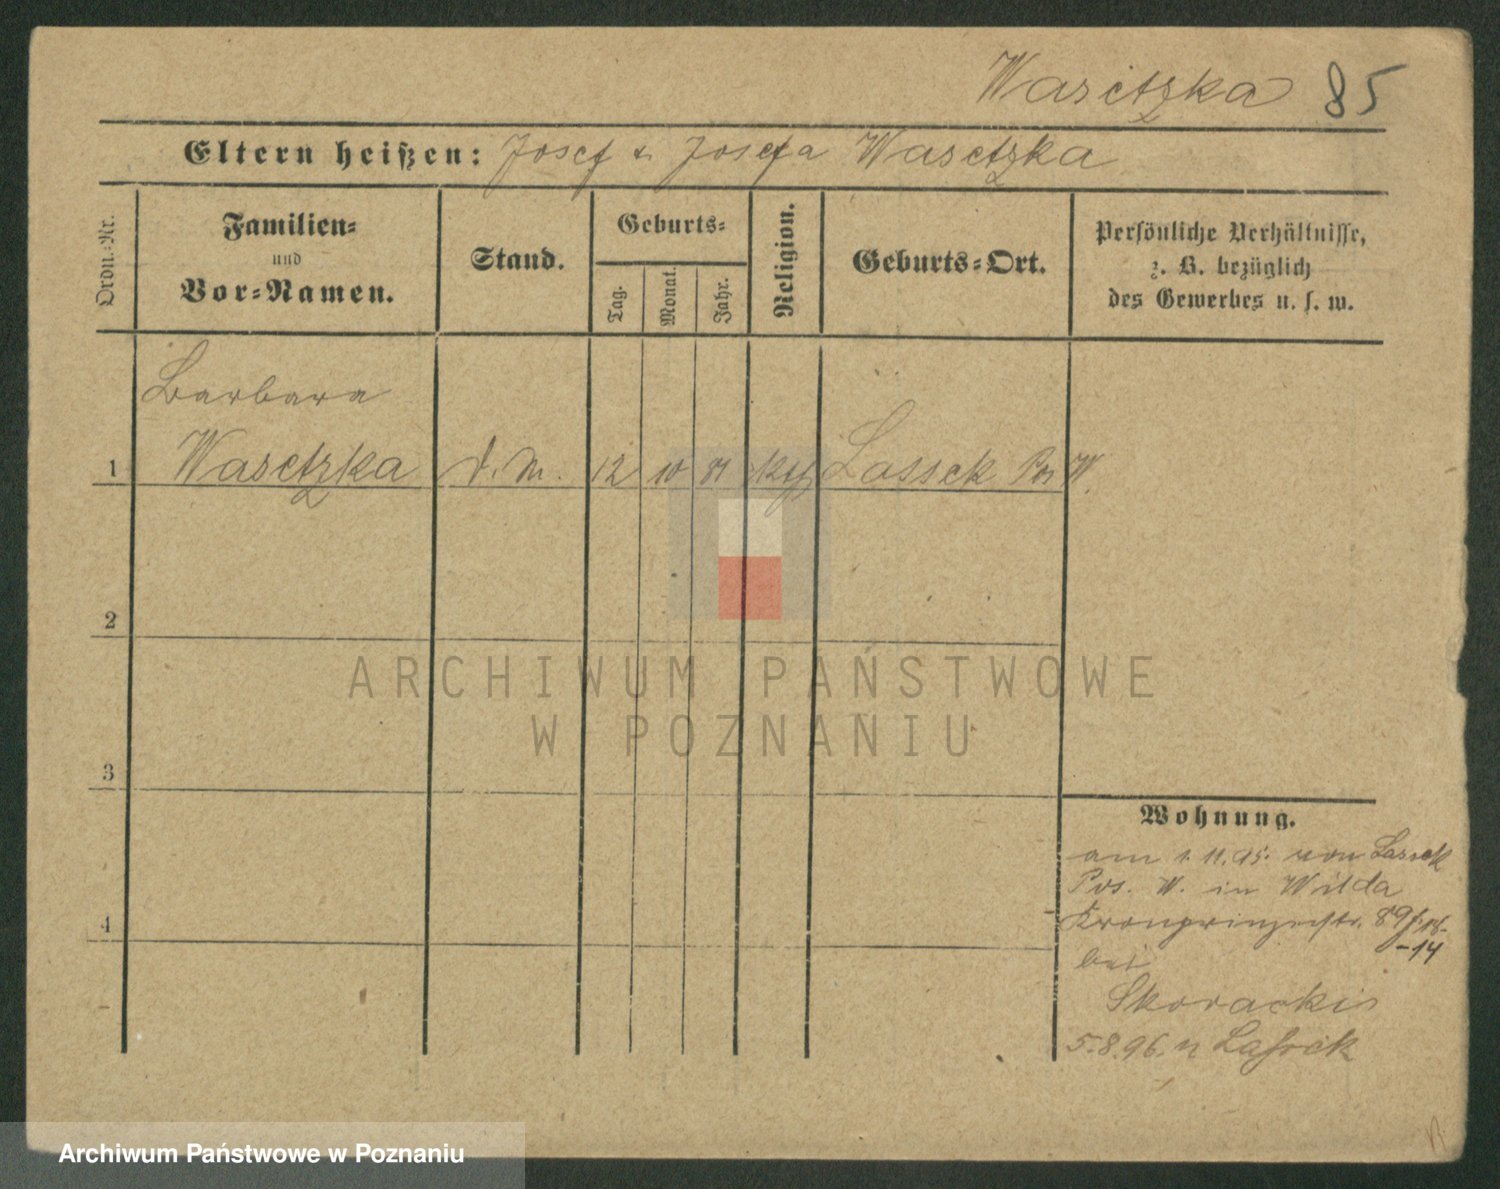 Wasetzka 85
Eltern heißen: Josef u. Josefa Wasetzka
Ordn.-Nr.
Familien-
und
Vor-Namen.
Stand.
Geburts-
Tag.
Monat.
Jahr.
Religion.
Geburts-Ort.
Persönliche Verhältnisse,
z. B. bezüglich
des Gewerbes u. s. w.
Barbara
1 Wasetzka d. M. 12 10 81 kth Lassek Pos W.
2
3
4
Wohnung.
am 1. 11. 95. von Lassek
Pos. W. in Wilda
Kronprinzenstr. 89
-14
bei
Skorackis
5.8.96. n Lassek
ARCHIWUM PAŃSTWOWE
W POZNANIU
Archiwum Państwowe w Poznaniu